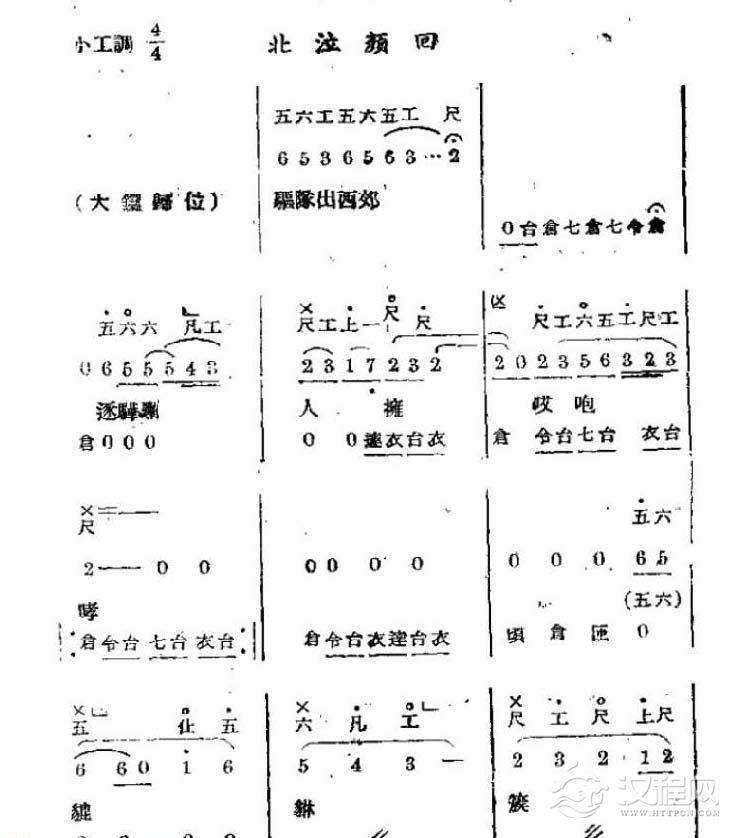 小工調 4/4 北泣顏回
五六工五六五工 尺
6 5 3 6 5 6 3 … 2
(大鑼歸位) 驅隊出西郊
0台倉七倉七令倉
五六六 凡工 尺工上一尺尺 尺工六五工尺工
0 6 5 5 5 4 3 2 3 1 7 2 3 2 2 0 2 3 5 6 3 2 3
逐驊騮 人 擁 哎咆
倉 0 0 0 0 0 逹衣台衣 倉 令台七台 衣台
尺 五六
2 — — 0 0 0 0 0 0 0 0 0 6 5
哮 (五六)
倉令台七台衣台 倉令台衣逹台衣 頃 倉 匝 0
五 仩五 六 凡 工 尺 工 尺 上尺
6 6 0 1 6 5 4 3 — 2 3 2 1 2
貔 簇
汉程网
WWW.HTTPCN.COM